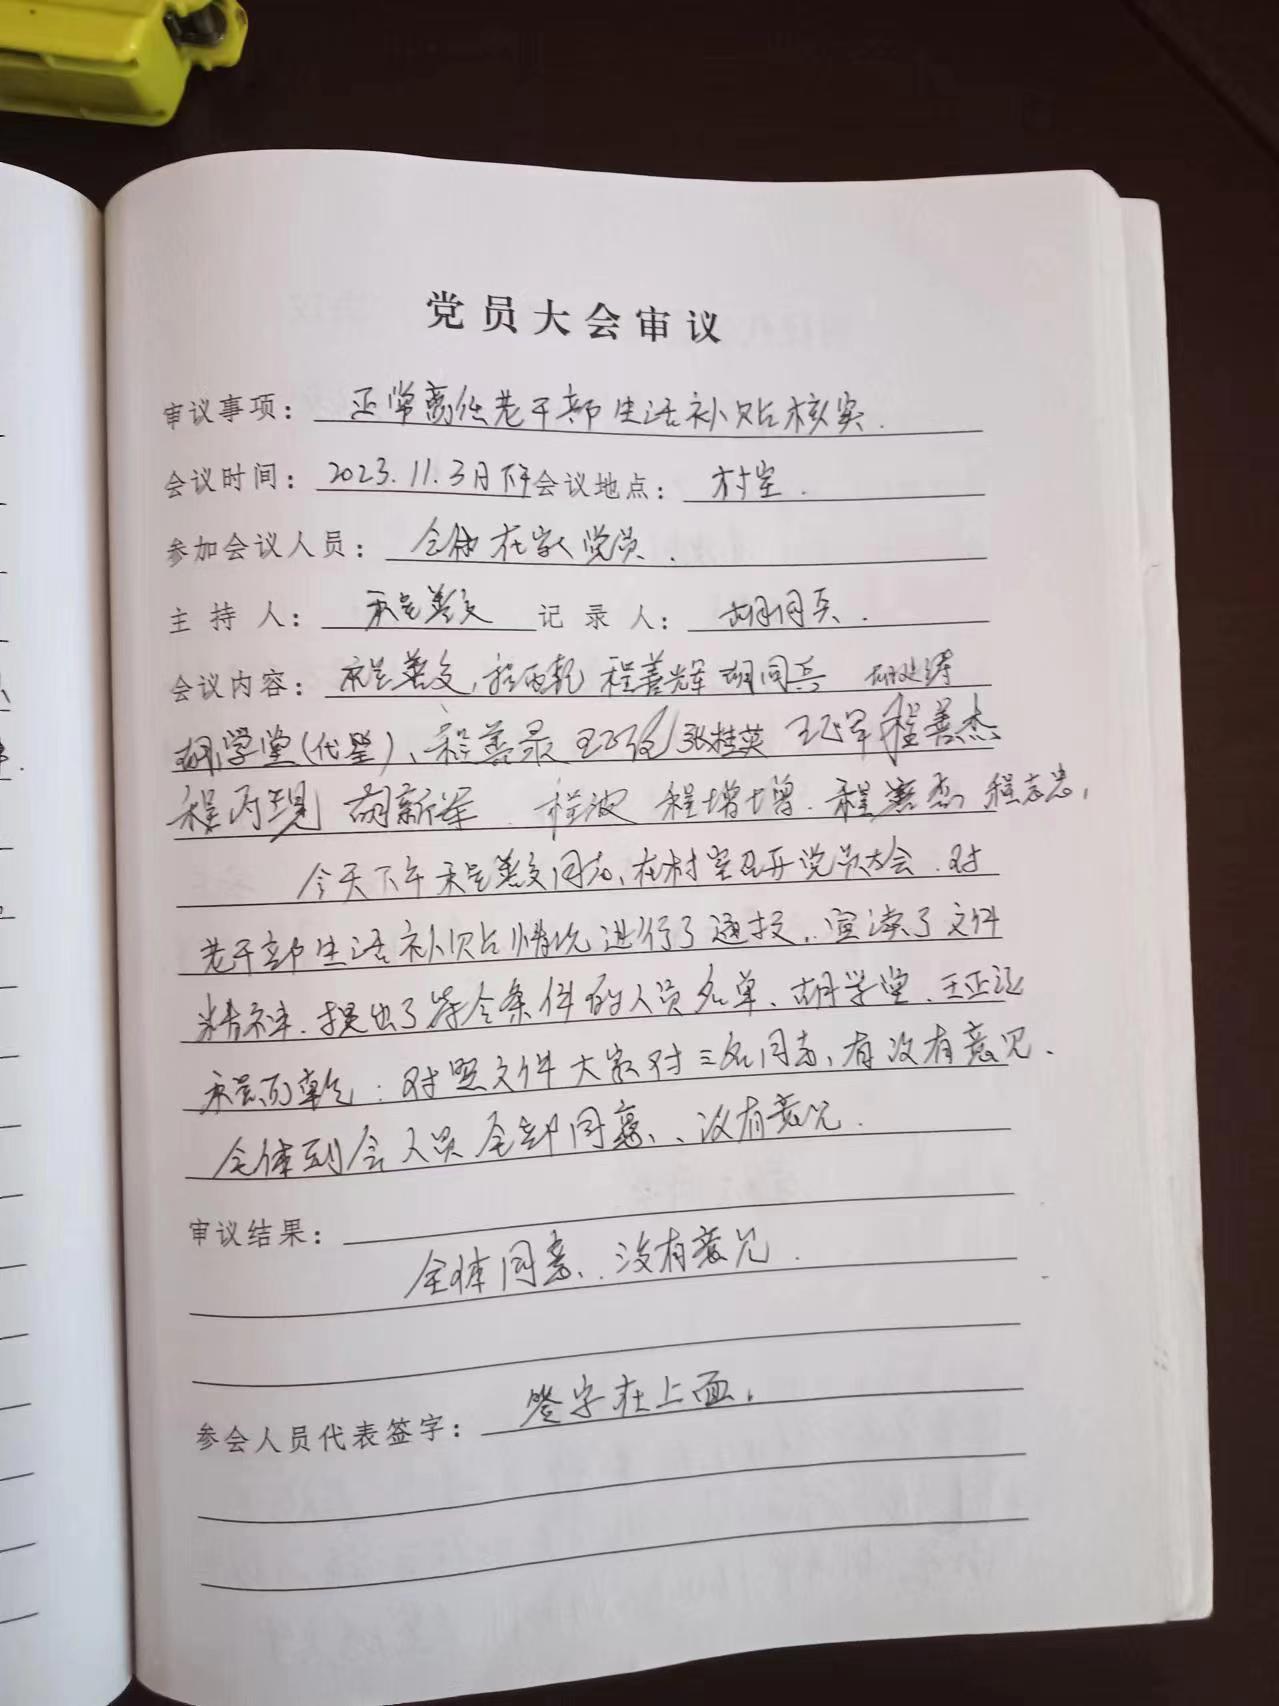 党员大会审议
审议事项：正常离任老干部生活补贴核实.
会议时间：2023.11.3月下午会议地点：村室.
参加会议人员：全体在家党员.
主持人：程善文 记录人：胡同兵.
会议内容：程善文,程丙乾 程善辉 胡同兵
胡学堂(代签)、程善录 张桂英 程善杰
程丙现 胡新军 程波 程增增. 程志忠,
今天下午程善文同志、在村室召开党员大会.对
老干部生活补贴情况进行了通报,宣读了文件
精神.提出了符合条件的人员名单、胡学堂.王正
程丙乾:对照文件大家对三名同志,有没有意见.
全体到会人员全部同意、、没有意见.
审议结果：
全体同意、.没有意见.
参会人员代表签字：签字在上面.